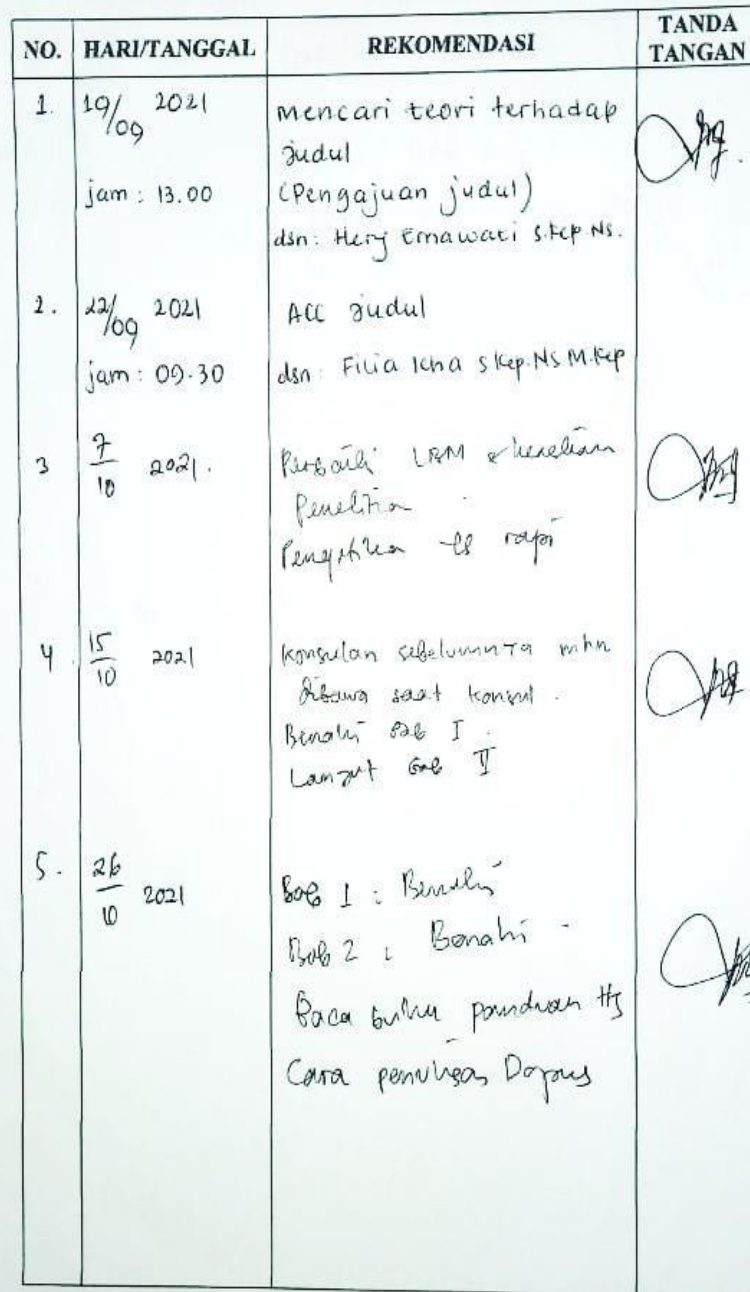 NO. HARI/TANGGAL REKOMENDASI TANDA TANGAN
1. 19/09 2021 mencari teori terhadap
judul
jam : 13.00 (Pengajuan judul)
dsn: Hery Ernawati S.Kep Ns.
2. 22/09 2021 ACC judul
jam : 09.30 dsn: Filia Icha S Kep. NS M.Kep
3 7/10 2021. Perbaiki LBM &
Penelitian
rapi
4 15/10 2021 Konsulan sebelumnya mhn
dibawa saat konsul.
Benahi Bab I.
Lanjut Bab II
5. 26/10 2021 Bab 1 : Benahi
Bab 2 : Benahi
Baca buku panduan ttg
Cara penulisan Dapus